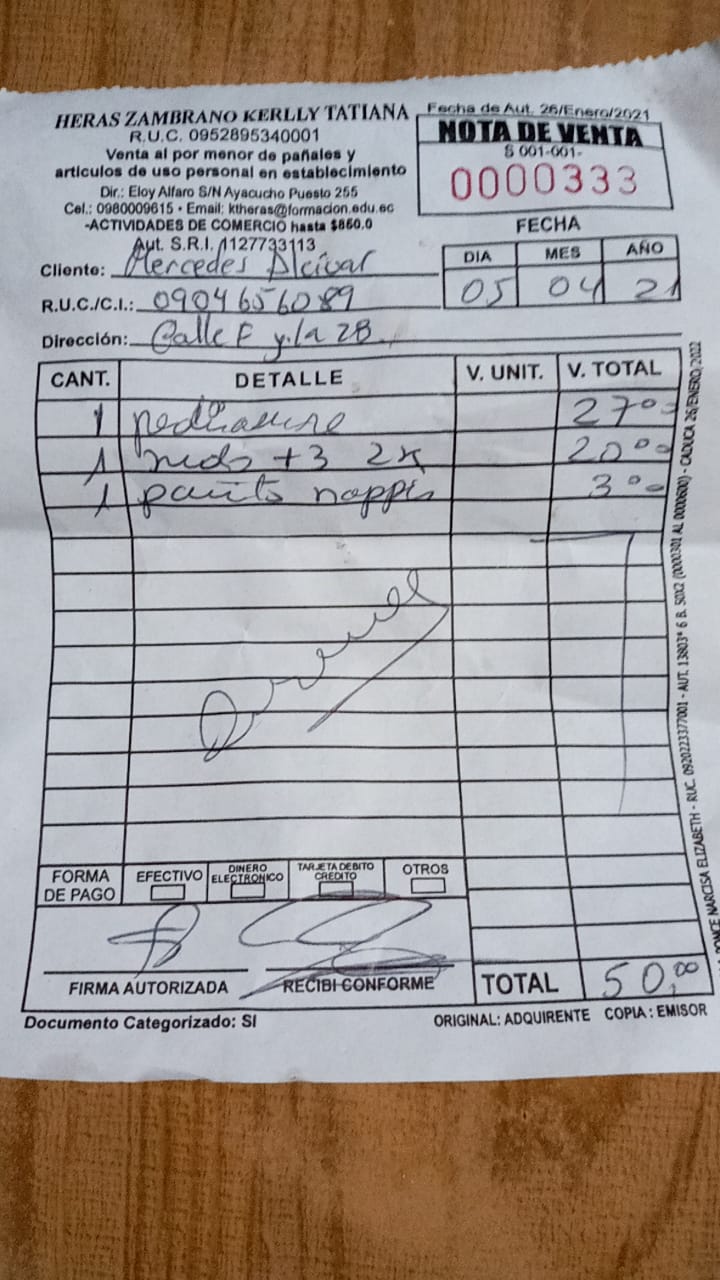 HERAS ZAMBRANO KERLLY TATIANA
R.U.C. 0952895340001
Venta al por menor de pañales y
articulos de uso personal en establecimiento
Dir.: Eloy Alfaro S/N Ayacucho Puesto 255
Cel.: 0980009615 • Email: ktheras@formacion.edu.ec
-ACTIVIDADES DE COMERCIO hasta $860.0
Aut. S.R.I. 1127733113
Fecha de Aut. 26/Enero/2021
NOTA DE VENTA
S 001-001-
0000333
FECHA
DIA MES AÑO
05 04 21
Cliente: Mercedes Alcivar
R.U.C./C.I.: 0904656089
Dirección: Calle F y la 28
CANT. DETALLE V. UNIT. V. TOTAL
1 pediasure 27.00
1 nido +3 2K 20.00
1 pañito 3.00
FORMA DE PAGO
EFECTIVO
DINERO ELECTRONICO
TARJETA DEBITO CREDITO
OTROS
FIRMA AUTORIZADA
RECIBI CONFORME
TOTAL 50,00
Documento Categorizado: SI
ORIGINAL: ADQUIRENTE COPIA: EMISOR
PONCE NARCISA ELIZABETH - RUC. 0920223377001 - AUT. 13803* 6 B. 50X2 (0000301 AL 0000600) - CADUCA 26/ENERO/2022